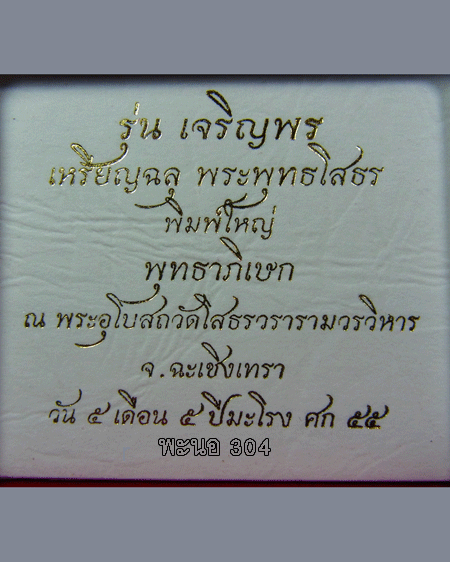 รุ่น เจริญพร
เหรียญฉลุ พระพุทธโสธร
พิมพ์ใหญ่
พุทธาภิเษก
ณ พระอุโบสถวัดโสธรวรารามวรวิหาร
จ.ฉะเชิงเทรา
วัน ๕ เดือน ๕ ปีมะโรง ศก ๕๕
พะนอ 304